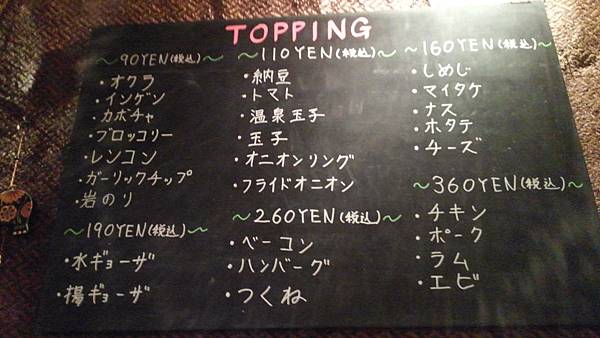 TOPPING
～90YEN(税込)～
・オクラ
・インゲン
・カボチャ
・ブロッコリー
・レンコン
・ガーリックチップ
・岩のり
～190YEN(税込)～
・水ギョーザ
・揚ギョーザ
～110YEN(税込)～
・納豆
・トマト
・温泉玉子
・玉子
・オニオンリング
・フライドオニオン
～260YEN(税込)～
・ベーコン
・ハンバーグ
・つくね
～160YEN(税込)～
・しめじ
・マイタケ
・ナス
・ホタテ
・チーズ
～360YEN(税込)～
・チキン
・ポーク
・ラム
・エビ